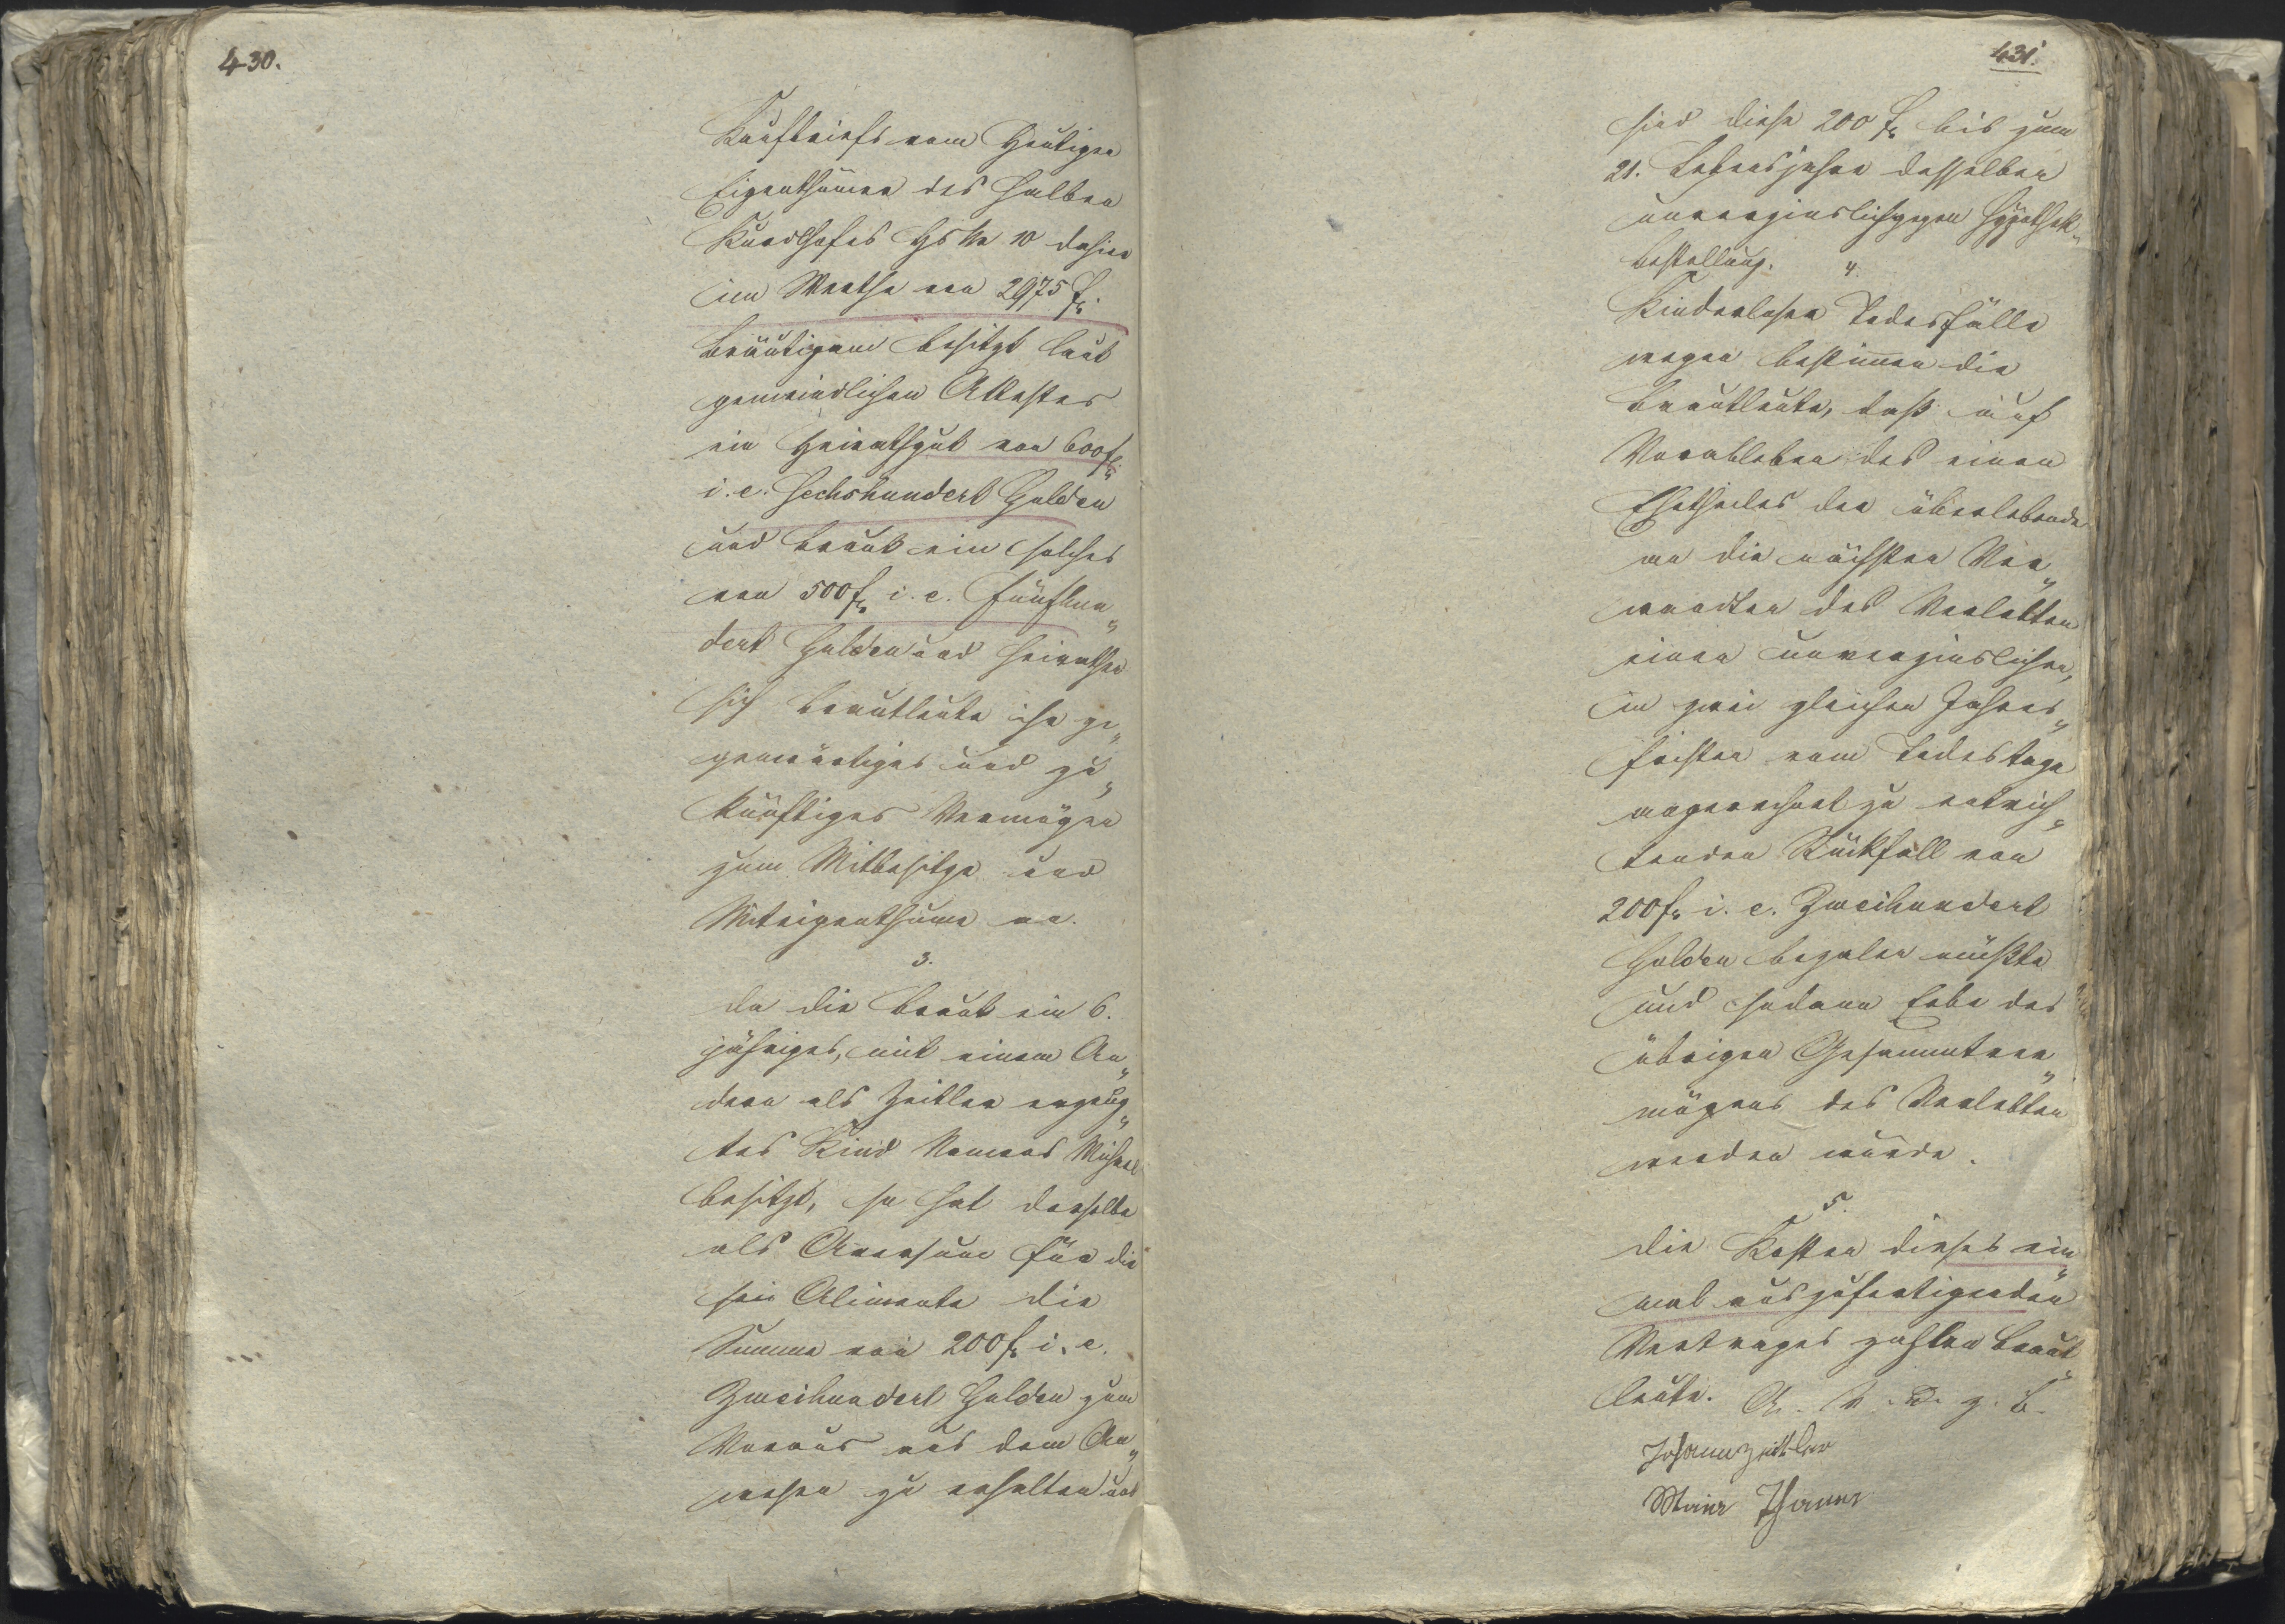 430.
Kaufbriefs vom Heutigen
Eigenthümer des halben
Hs Nr 10 dahier
im Werthe von 2975 f.
Bräutigam besitzt laut
gemeindlichen Attestes
ein Heirathgut von 600 f.
i. e. Sechshundert Gulden
und Braut ein solches
von 500 f i. e. Fünfhun„
dert Gulden und heirathen
sich Brautleute ihr ge„
genwärtiges und zu„
künftiges Vermögen
zum Mitbesitze und
Miteigenthume an.
3.
Da die Braut ein 6.
jähriges, mit einem An„
dern als Zeitler erzeug„
tes Kind Namens Michael
besitzt, so hat derselbe
als Aversum für die
Alimente die
Summe von 200 f i. e.
Zweihundert Gulden zum
Voraus aus dem An„
wesen zu erhalten und
431.
sind diese 200 f bis zum
21. Lebensjahre desselben
unverzinslich gegen Hypothek„
bestellung.
4.
Kinderlosen Todesfälle
wegen bestimmen die
Brautleute, daß auf
Vorableben des einen
Ehetheiles der überlebende
an die nächsten Ver„
wandten des Verlebten
einen unverzinslichen,
in zwei gleichen Jahres„
fristen vom Todestage
angerechnet zu entrich„
tenden Rückfall von
200 f i. e. Zweihundert
Gulden bezalen müßte
und sodann Erbe des
übrigen Gesammtver„
mögens des Verlebten
werden würde.
5.
Die Kosten dieses ein„
mal auszufertigenden
Vertrages zahlen Braut„
leute.
Johann Zeittler